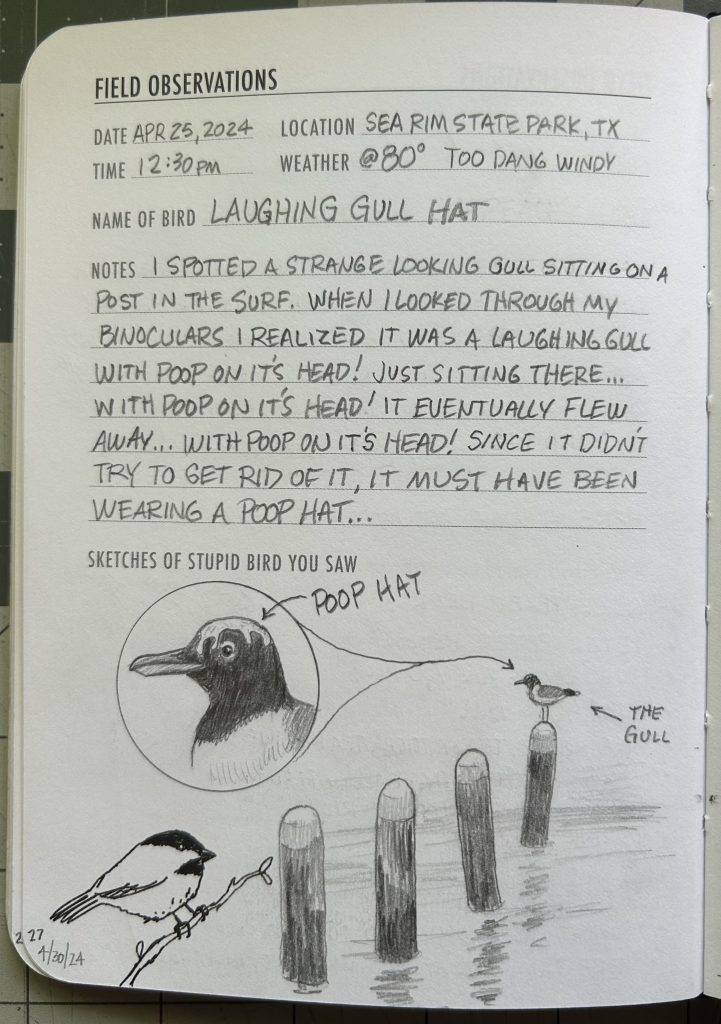 FIELD OBSERVATIONS
DATE APR 25, 2024 LOCATION SEA RIM STATE PARK, TX
TIME 12:30PM WEATHER @80° TOO DANG WINDY
NAME OF BIRD LAUGHING GULL HAT
NOTES I SPOTTED A STRANGE LOOKING GULL SITTING ON A
POST IN THE SURF. WHEN I LOOKED THROUGH MY
BINOCULARS I REALIZED IT WAS A LAUGHING GULL
WITH POOP ON IT'S HEAD! JUST SITTING THERE...
WITH POOP ON IT'S HEAD! IT EVENTUALLY FLEW
AWAY... WITH POOP ON IT'S HEAD! SINCE IT DIDN'T
TRY TO GET RID OF IT, IT MUST HAVE BEEN
WEARING A POOP HAT...
SKETCHES OF STUPID BIRD YOU SAW
POOP HAT
THE
GULL
227
4/30/24